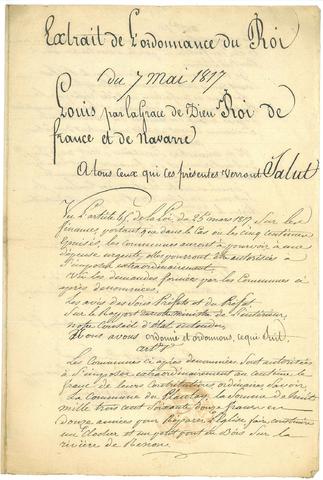 Extrait de L'ordonnance du Roi
du 7 mai 1817
Louis par la Grace de Dieu Roi de
france et de navarre
A tous ceux qui ces présentes verront Salut
Vu l'article 45 de la Loi du 25 mars 1817 Sur les
finances, portant que dans le Cas ou les cinq centimes
épuisés, les Communes auront à pourvoir à une
dépense urgente, elles pourront être autorisées à
S'imposer extraordinairement.
Vu les demandes formées par les Communes ci
après dénommées,
les avis des Sous Préfets et du Préfet
Sur le Rapport de notre ministre de l'intérieur,
notre Conseil d'état entendu,
Nous avons ordonné et ordonnons, ce qui Suit,
art. 1er
Les Communes ci après dénommées Sont autorisées
à S'imposer extraordinairement au centime le
franc de leurs Contributions ordinaires, Savoir
La Commune de la Somme de huit
mille trois cent Soixante douze francs en
douze années pour Réparer l'Eglise, faire construire
un Clocher et un petit pont en Bois Sur la
rivière de